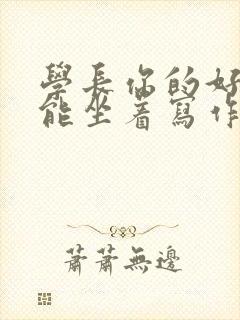 學長你的好
能坐着寫作
蕭蕭無邊